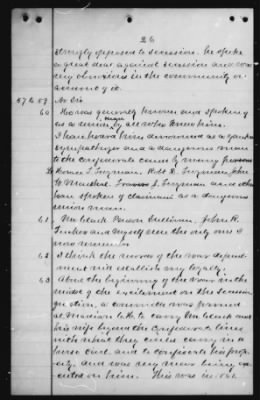 26
strongly opposed to secession. He spoke
a great deal against secession and was
very obnoxious in the community on
account of it.
57 to 59 No Sir.
60 He was generally known and spoken of
as a union man by all rebel
I have heard him denounced as a yankee
sympathizer and a dangerous man
to the confederate cause by many persons
Thomas J. Freeman, Robt. S. Freeman John
W. Francis J. Freeman and others
have spoken of claimant as a dangerous
union man.
61 Wm black Parson John R.
and myself were the only ones I
now remember
62 I think the records of the war depart-
ment will establish my loyalty.
63 About the beginning of the war in the
midst of the excitement on the secession
question, a committee was formed
at Madison to carry Wm black and
his wife beyond the Confederate lines
with what they could carry in a
horse cart, and to confiscate his prop-
erty, and was very near being ex-
ecuted on him. This was in our